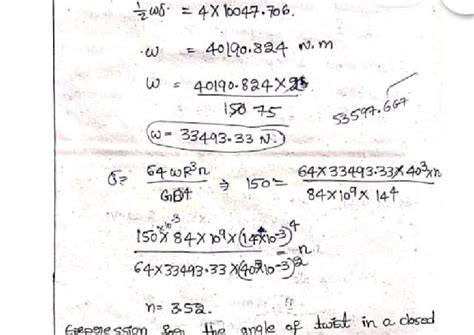 1/2 ωδ. = 4×10047.706.
ω = 40190.824 N.m
ω = 40190.824×2
150 75
53597.667
ω = 33493.33 N.
δ = 64ωR³n / GD⁴ ⇒ 150 = 64×33493.33×40³×n / 84×10⁹×14⁴
150×10⁻³×84×10⁹×(14×10⁻³)⁴ / 64×33493.33×(40×10⁻³)² = n
n = 352.
Expression for the angle of twist in a closed